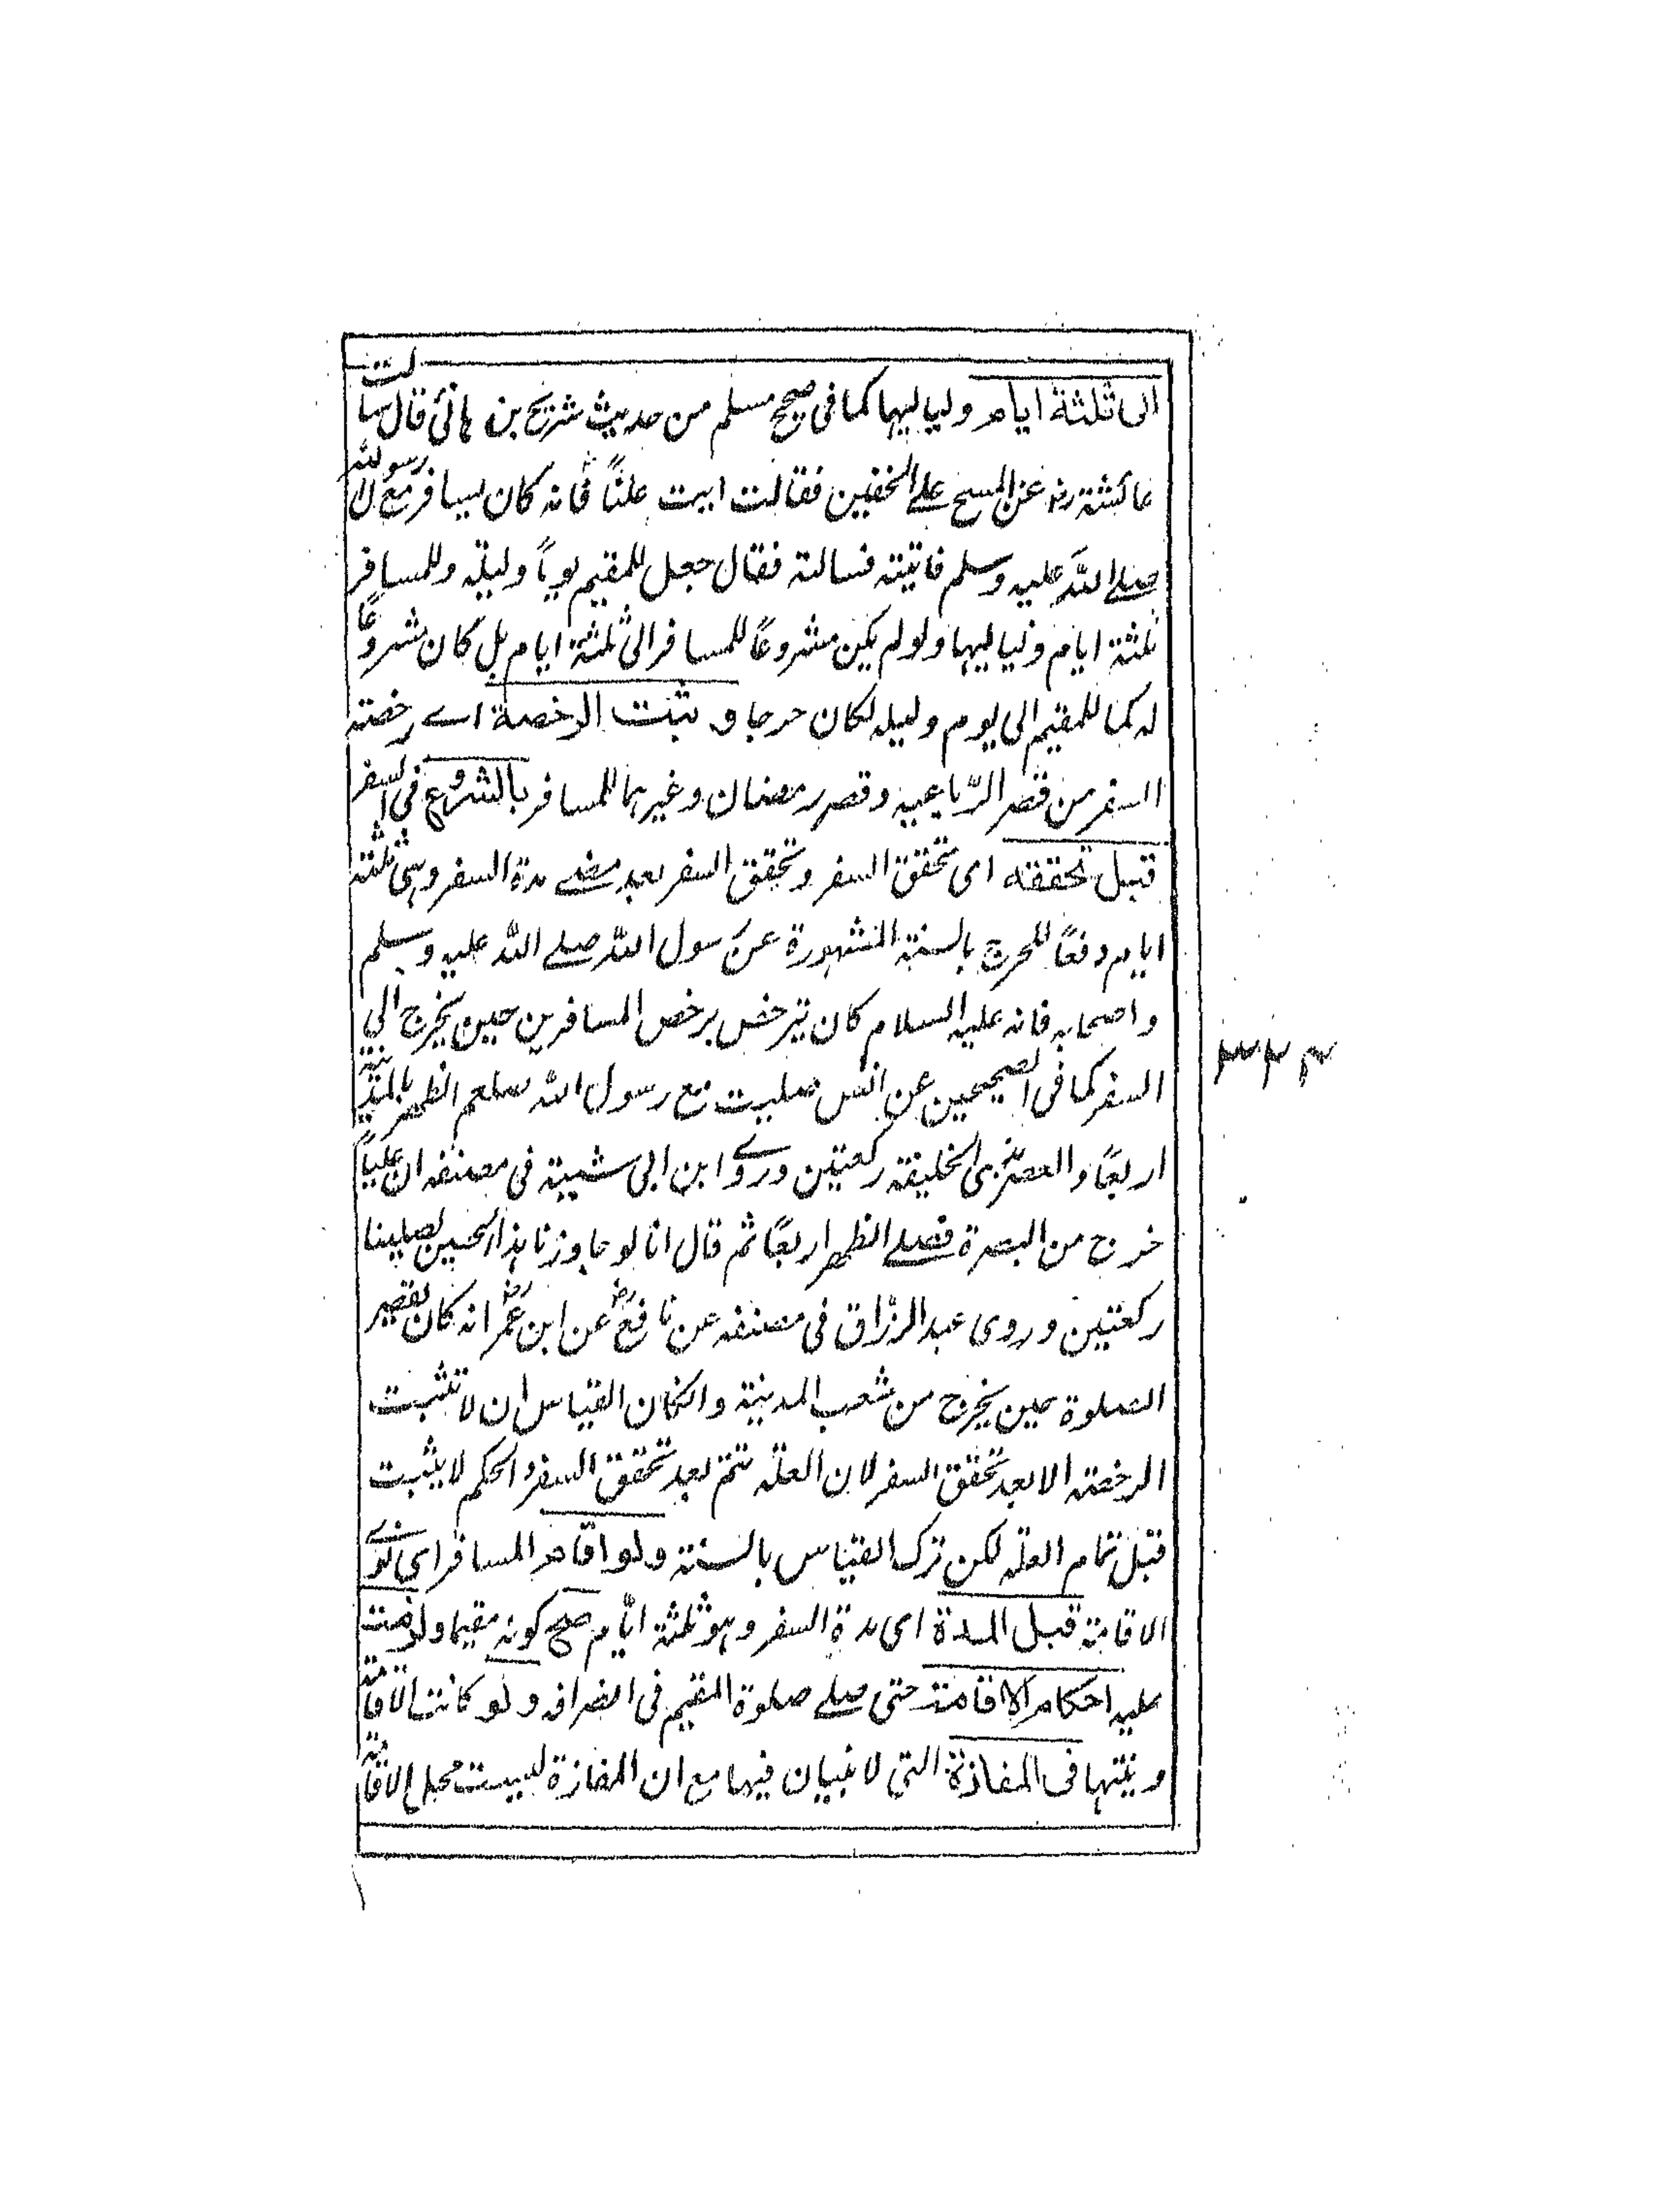 الى ثلثة ايام ولياليها كما فى صحيح مسلم من حديث شريح بن هانئ قال سالت
عائشة رض عن المسح على الخفين فقالت ايت عليًّا فانه كان يسافر مع رسول الله
صلى الله عليه وسلم فاتيته فسالته فقال جعل للمقيم يوماً وليلة وللمسافر
ثلثة ايام ولياليها ولو لم يكن مشروعاً للمسافر الى ثلثة ايام بل كان مشروعاً
له كما للمقيم الى يوم وليلة لكان حرجا و تثبت الرخصة اے رخصة
السفر من قصر الرّباعية و قصر رمضان وغيرهما للمسافر بالشروع فى السفر
قبل تحققه اى تحقق السفر وتحقق السفر بعد مضے مدة السفر وهى ثلثة
ايام دفعًا للحرج بالسنة المشهورة عن رسول الله صلے الله عليه وسلم
و اصحابه فانه عليه السلام كان يترخص برخص المسافرين حين يخرج الى
السفر كما فى الصحيحين عن انس صليت مع رسول الله صلعم الظهر بالمدينة
اربعًا والعصر بذى الحليفة ركعتين وروے ابن ابى شيبة فى مصنفه ان علياً
خرج من البصرة فصلے الظهر اربعًا ثم قال انا لو جاوزنا هذا لصلينا
ركعتين وروى عبد الرزّاق فى مصنفه عن نافع رض عن ابن عمر رض انه كان يقصر
الصلوة حين يخرج من شعب المدينة وانكان القياس ان لا تثبت
الرخصة الا بعد تحقق السفر لان العلة تتم بعد تحقق السفر والحكم لا يثبت
قبل تمام العلة لكن ترك القياس بالسنة ولو اقام المسافر اى نوے
الاقامة قبل المدة اى مدة السفر وهو ثلثة ايّام صح كونه مقيما ولزمت
عليه احكام الاقامة حتى صلے صلوة المقيم فى انصرافه ولو كانت الاقامة
ونيتها فى المفازة التى لا بنيان فيها مع ان المفازة ليست محل الاقامة
٣٢٤